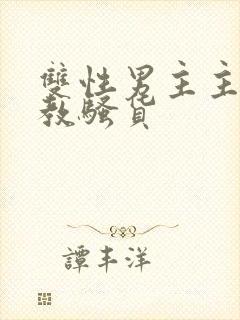 雙性男主主
教騷貨
譚丰洋